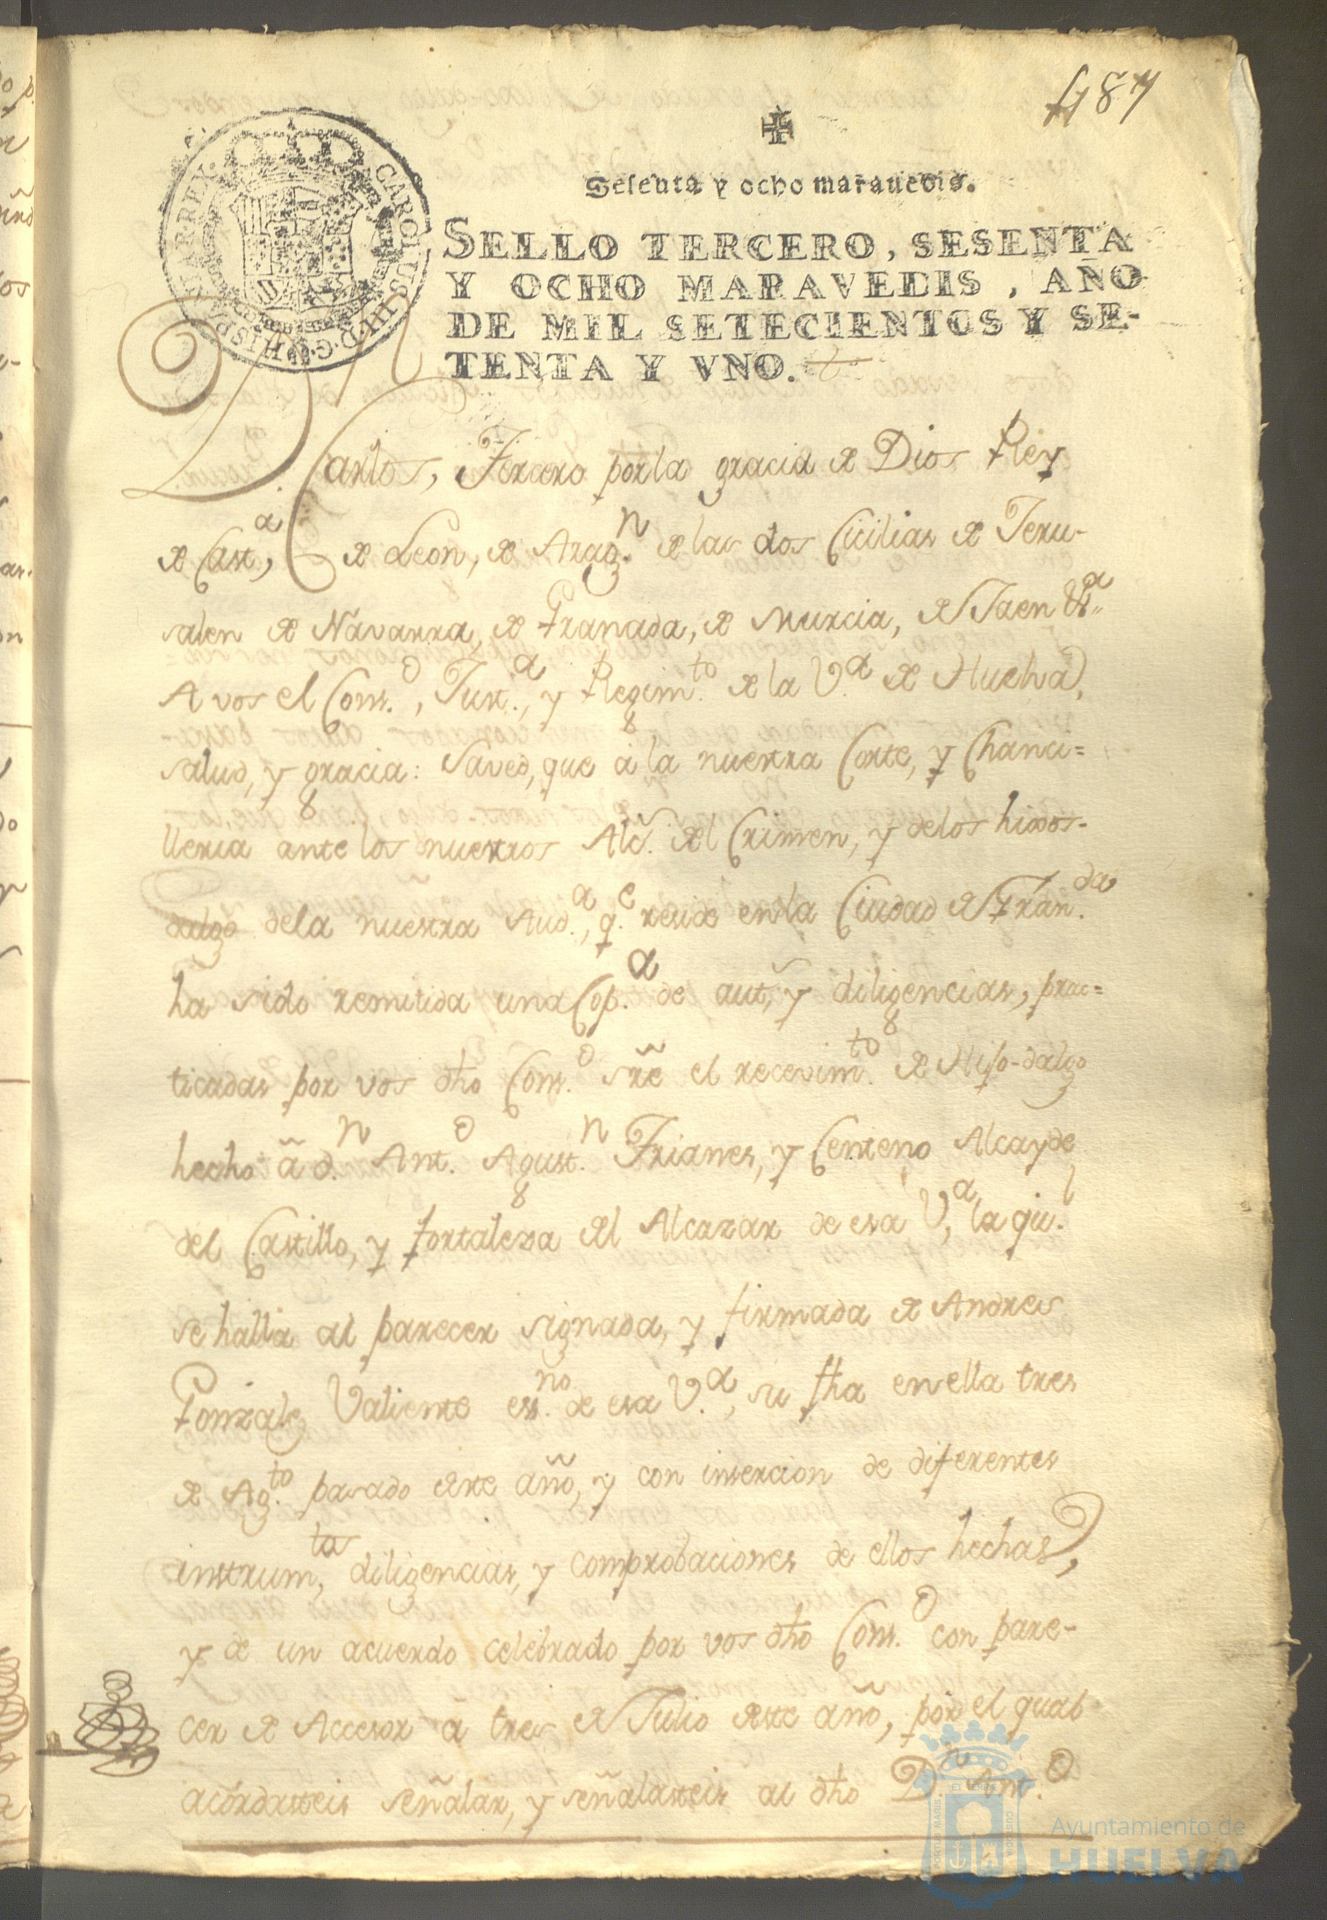 487
Sesenta y ocho maravedis.
SELLO TERCERO, SESENTA
Y OCHO MARAVEDIS, AÑO
DE MIL SETECIENTOS Y SE-
TENTA Y VNO.
CAROLUS III D. G. HISPANIAR REX
Dn Carlos, Tercero por la gracia de Dios Rey
de Cast.a, de Leon, de Arag.n de las dos Cicilias de Jeru-
salen de Navarra, de Granada, de Murcia, de Jaen &.a
A vos el Cons.o, Just.a, y Regim.to de la V.a de Huelva,
salud, y gracia: Saved, que à la nuestra Corte, y Chanci=
lleria ante los nuestros Alc.s del Crimen, y delos hixos-
dalgo dela nuestra Aud.a, q.e reside en la Ciudad de Gran.da
ha sido remitida una Cop.a de aut.s y diligencias, prac=
ticadas por vos dho Cons.o sre el recevim.to de Hijo-dalgo
hecho ã d.n Ant.o Agust.n Trianes, y Centeno Alcayde
del Castillo, y fortaleza del Alcazar de esa V.a, la qu.l
se halla al parecer signada, y firmada de Andres
Gonzalez Valiente ess.no de esa V.a, su fha en ella tres
de Ag.to pasado este año, y con insercion de diferentes
instrum.tos, diligencias, y comprobaciones de ellos hechas,
y de un acuerdo celebrado por vos dho Cons.o con pare-
cer de Accesor a tres de Julio deste año, por el qual
acordasteis señalar, y señalasteis al dho D.n Ant.o
Ayuntamiento de
HUELVA